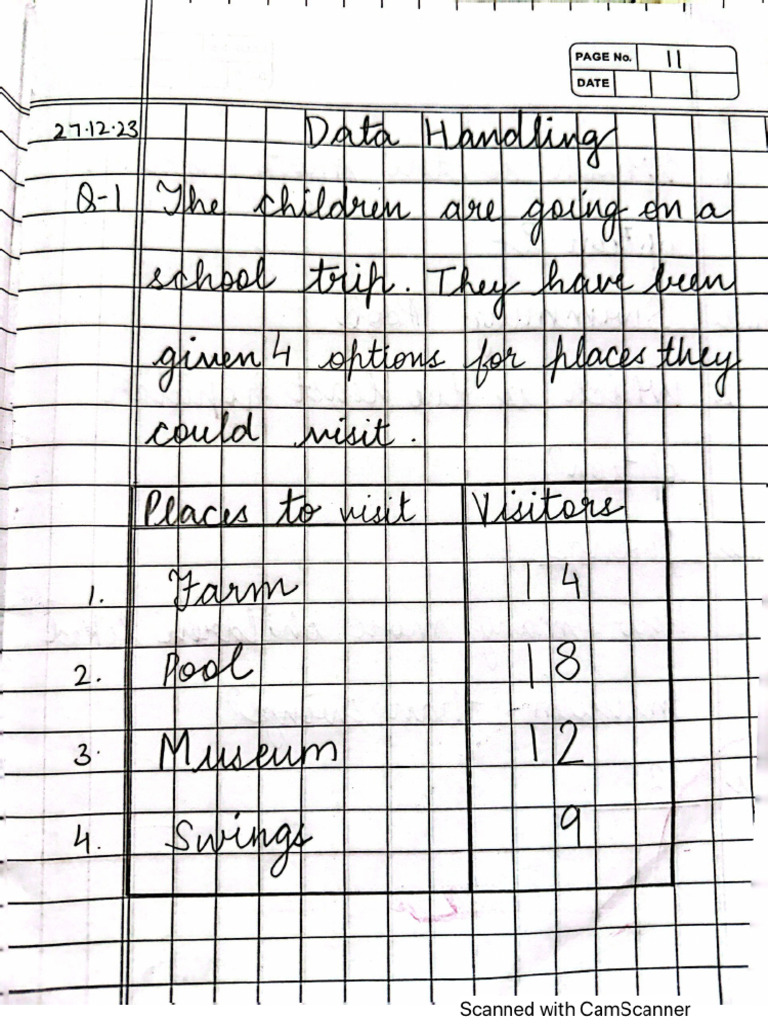 PAGE No. 11
DATE
27.12.23 Data Handling
Q-1 The children are going on a
school trip. They have been
given 4 options for places they
could visit.
Places to visit Visitors
1. Farm 14
2. Pool 18
3. Museum 12
4. Swings 9
Scanned with CamScanner